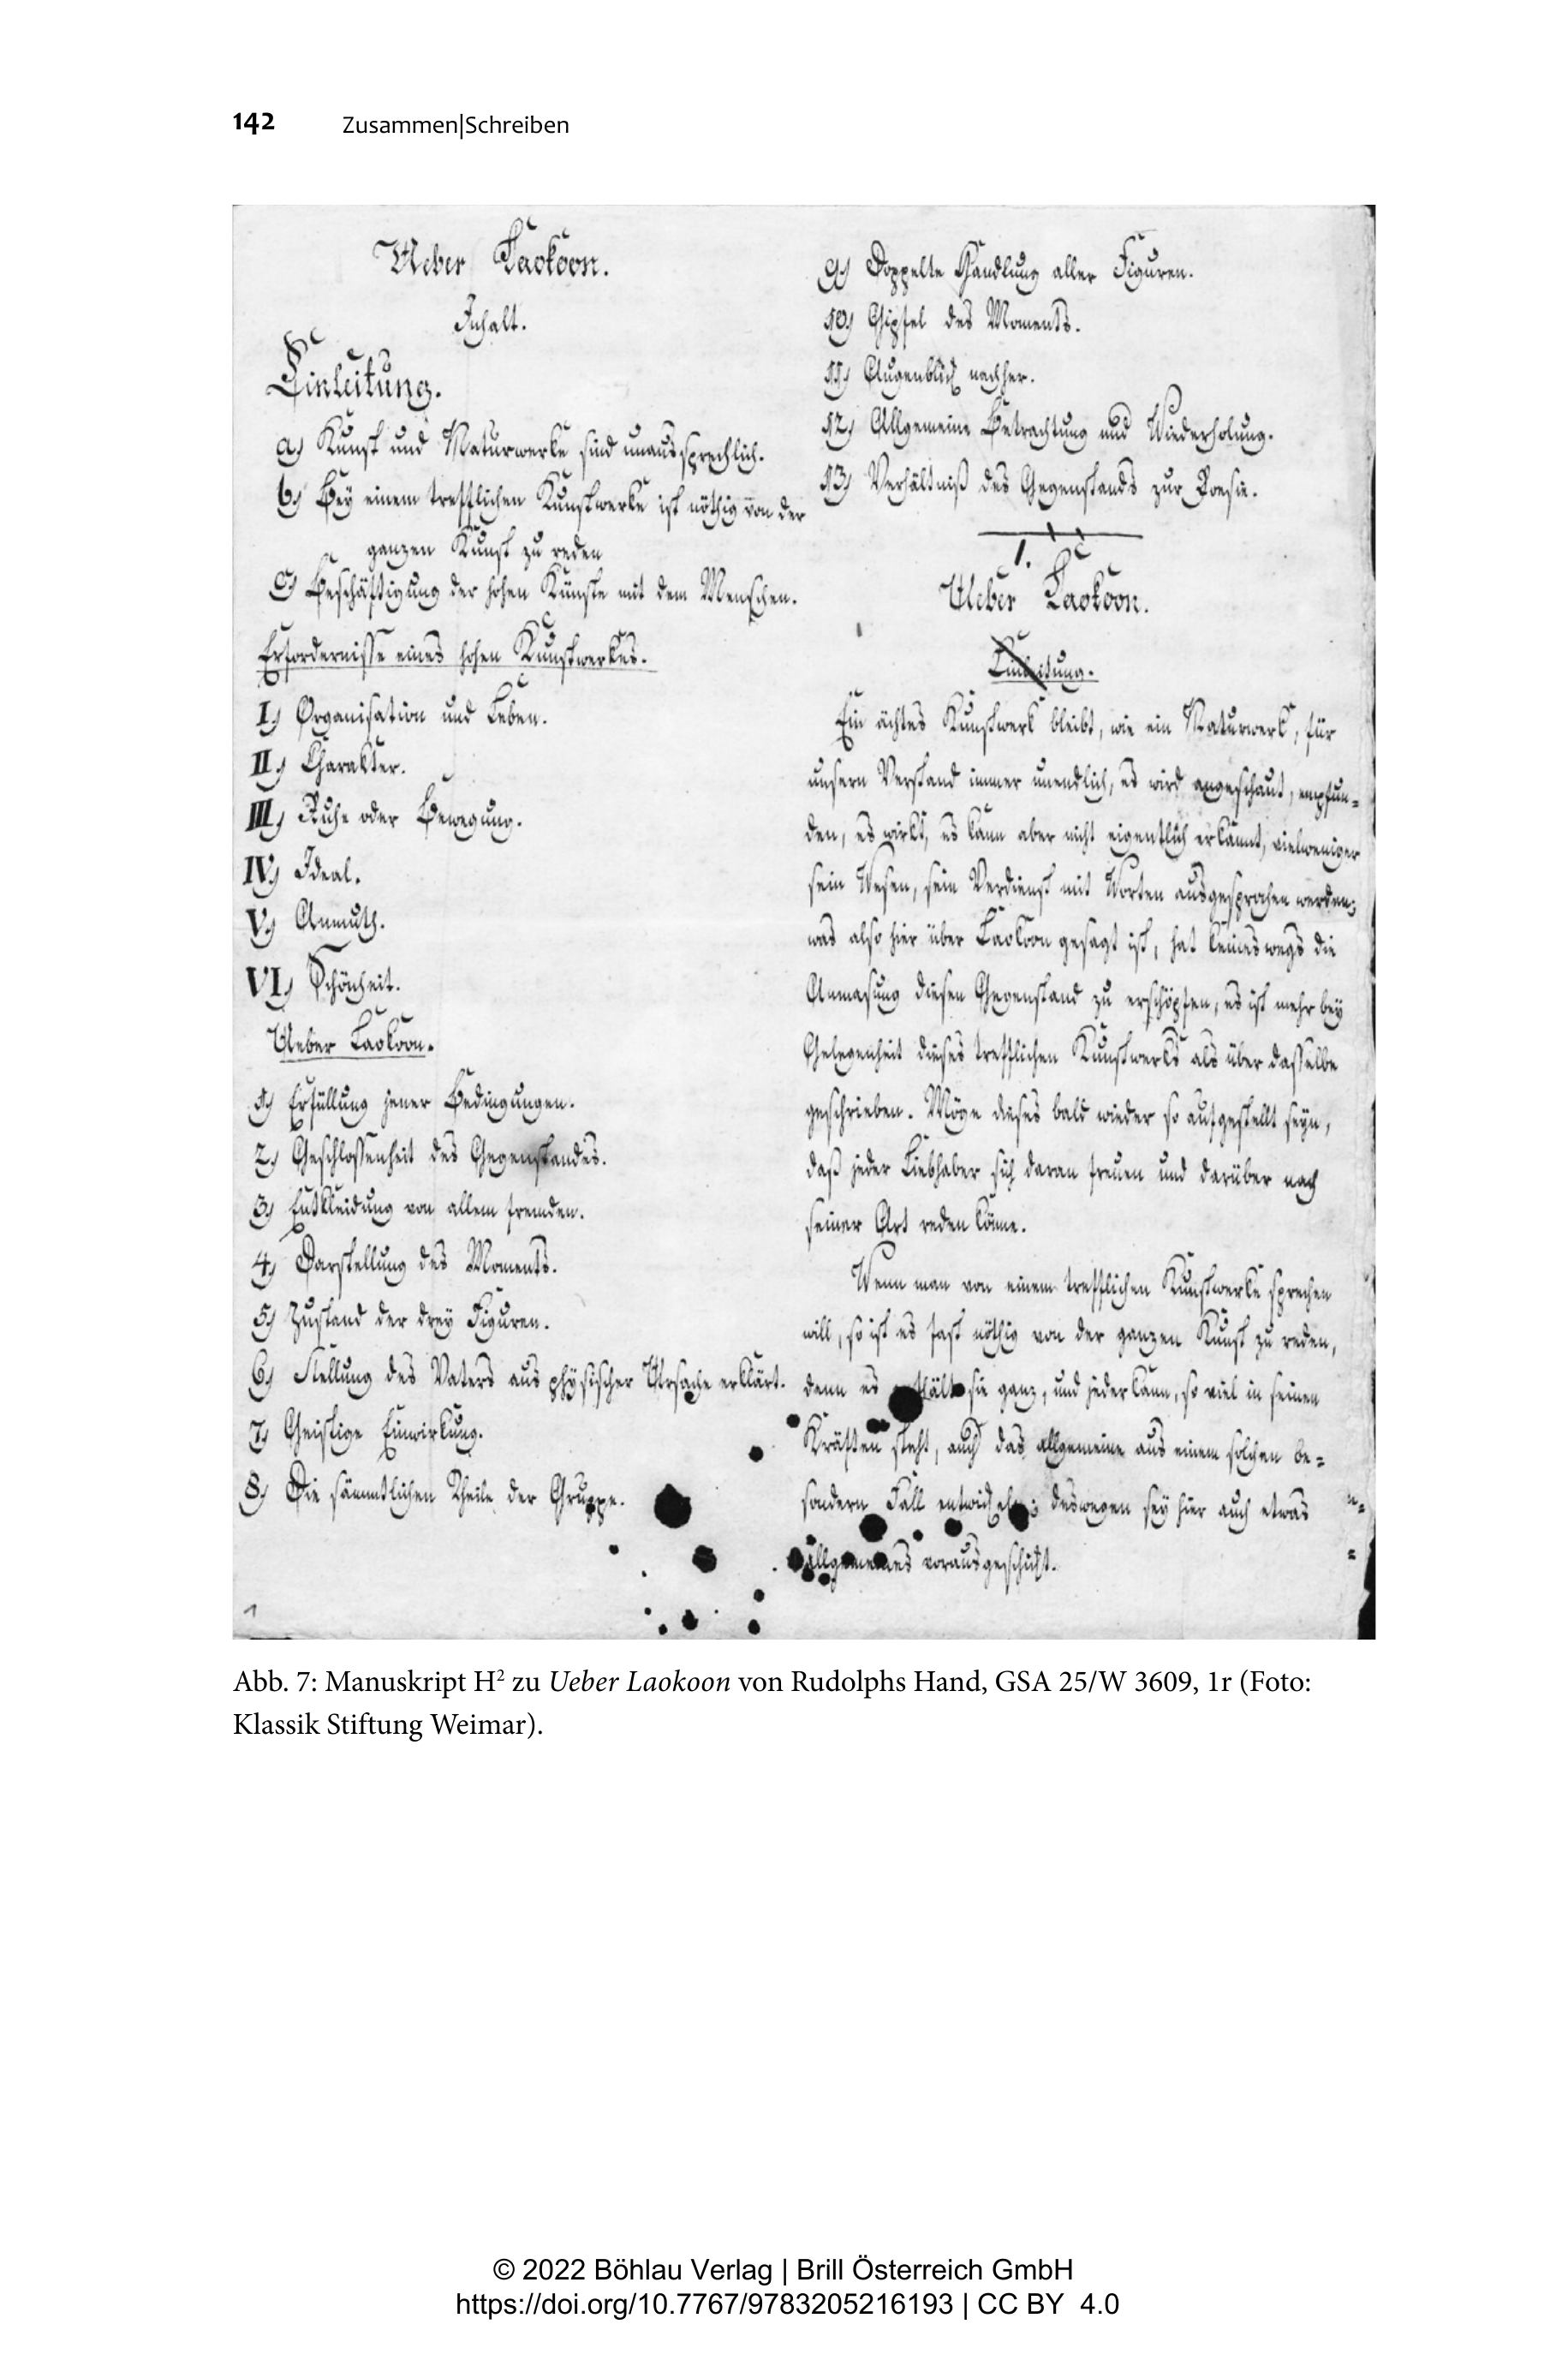 142 Zusammen|Schreiben
Ueber Laokoon.
Inhalt.
Einleitung.
a) Kunst und Naturwerke sind unaussprechlich.
b) Bey einem trefflichen Kunstwerke ist nöthig von der
ganzen Kunst zu reden
c) Beschäftigung der hohen Künste mit dem Menschen.
Erfordernisse eines hohen Kunstwerkes.
I) Organisation und Leben.
II) Charakter.
III) Ruhe oder Bewegung.
IV) Ideal.
V) Anmuth.
VI) Schönheit.
Ueber Laokoon.
1) Erfüllung jener Bedingungen.
2) Geschlossenheit des Gegenstandes.
3) Entkleidung von allem fremden.
4) Darstellung des Moments.
5) Zustand der drey Figuren.
6) Stellung des Vaters aus physischer Ursache erklärt.
7) Geistige Einwirkung.
8) Die sämmtlichen Theile der Gruppe.
1
9) Doppelte Handlung aller Figuren.
10) Gipfel des Moments.
11) Augenblick nachher.
12) Allgemeine Betrachtung und Wiederholung.
13) Verhältniß des Gegenstands zur Poesie.
1.
Ueber Laokoon.
Einleitung.
Ein ächtes Kunstwerk bleibt, wie ein Naturwerk, für
unsern Verstand immer unendlich, es wird angeschaut, empfun=
den, es wirkt, es kann aber nicht eigentlich erkannt, vielweniger
sein Wesen, sein Verdienst mit Worten ausgesprochen werden;
was also hier über Laokoon gesagt ist, hat keineswegs die
Anmasung diesen Gegenstand zu erschöpfen, es ist mehr bey
Gelegenheit dieses trefflichen Kunstwerks als über dasselbe
geschrieben. Möge dieses bald wieder so aufgestellt seyn,
daß jeder Liebhaber sich daran freuen und darüber nach
seiner Art reden könne.
Wenn man von einem trefflichen Kunstwerke sprechen
will, so ist es fast nöthig von der ganzen Kunst zu reden,
denn es enthält sie ganz, und jeder kann, so viel in seinen
Kräften steht, auch das allgemeine aus einem solchen be=
sondern Fall entwickeln; deswegen sey hier auch etwas
allgemeines vorausgeschickt.
Abb. 7: Manuskript H² zu Ueber Laokoon von Rudolphs Hand, GSA 25/W 3609, 1r (Foto:
Klassik Stiftung Weimar).
© 2022 Böhlau Verlag | Brill Österreich GmbH
https://doi.org/10.7767/9783205216193 | CC BY 4.0